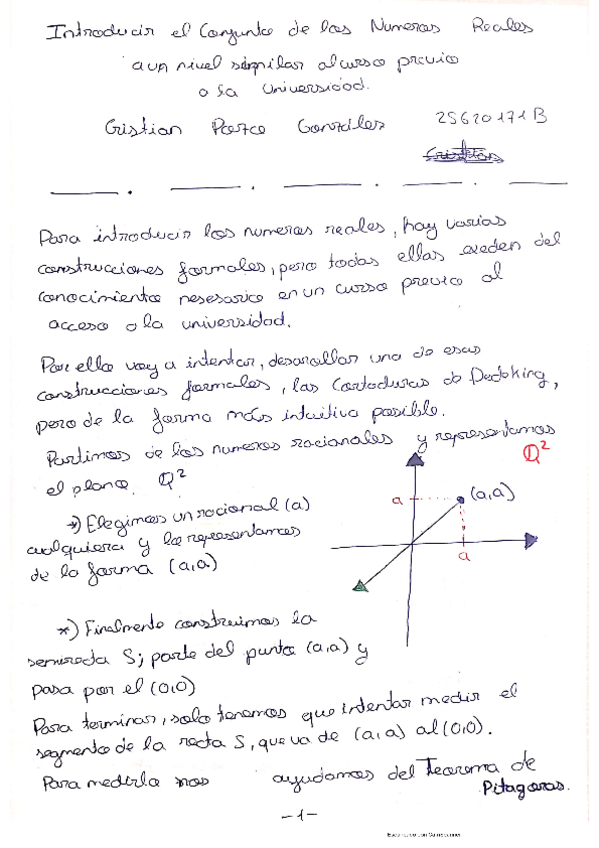 Introducir el Conjunto de los Numeros Reales
a un nivel similar al curso previo
a la Universidad.
Cristian González 25620171B
Para introducir los numeros reales, hay varias
construcciones formales, pero todas ellas exeden del
conocimiento nesesario en un curso previo al
acceso a la universidad.
Por ello voy a intentar, desarollar una de esas
construcciones formales, las Cortaduras de Dedeking,
pero de la forma más intuitiva posible.
Partimos de los numeros racionales y representamos
el plano. Q² Q²
*) Elegimos un racional (a)
cualquiera y lo representamos
de la forma (a,a)
a (a,a)
a
*) Finalmente construimos la
semirecta S; parte del punto (a,a) y
pasa por el (0,0)
Para terminar, solo tenemos que intentar medir el
segmento de la recta S, que va de (a,a) al (0,0).
Para medirlo nos ayudamos del Teorema de
Pitagoras.
-1-
Escaneado con CamScanner